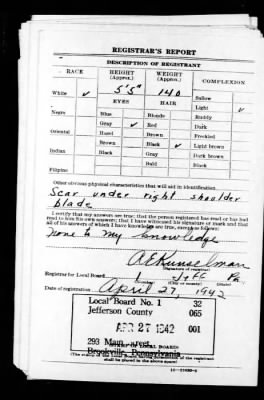 REGISTRAR'S REPORT
DESCRIPTION OF REGISTRANT
RACE HEIGHT (Approx.) WEIGHT (Approx.) COMPLEXION
White ✓ 5'5" 140 Sallow
Light ✓
EYES HAIR Ruddy
Negro Blue Blonde Dark
Gray ✓ Red Freckled
Oriental Hazel Brown Light brown
Brown Black ✓ Dark brown
Indian Black Gray Black
Bald
Filipino
Other obvious physical characteristics that will aid in identification
Scar under right shoulder
blade
I certify that my answers are true; that the person registered has read or has had
read to him his own answers; that I have witnessed his signature or mark and that
all of his answers of which I have knowledge are true, except as follows:
None to my knowledge
A E Kunselman
(Signature of registrar)
Registrar for Local Board 1 Jeff Pa.
Date of registration April 27, 1942
Local Board No. 1 32
Jefferson County 065
APR 27 1942 001
293 Main Street
Brookville, Pennsylvania